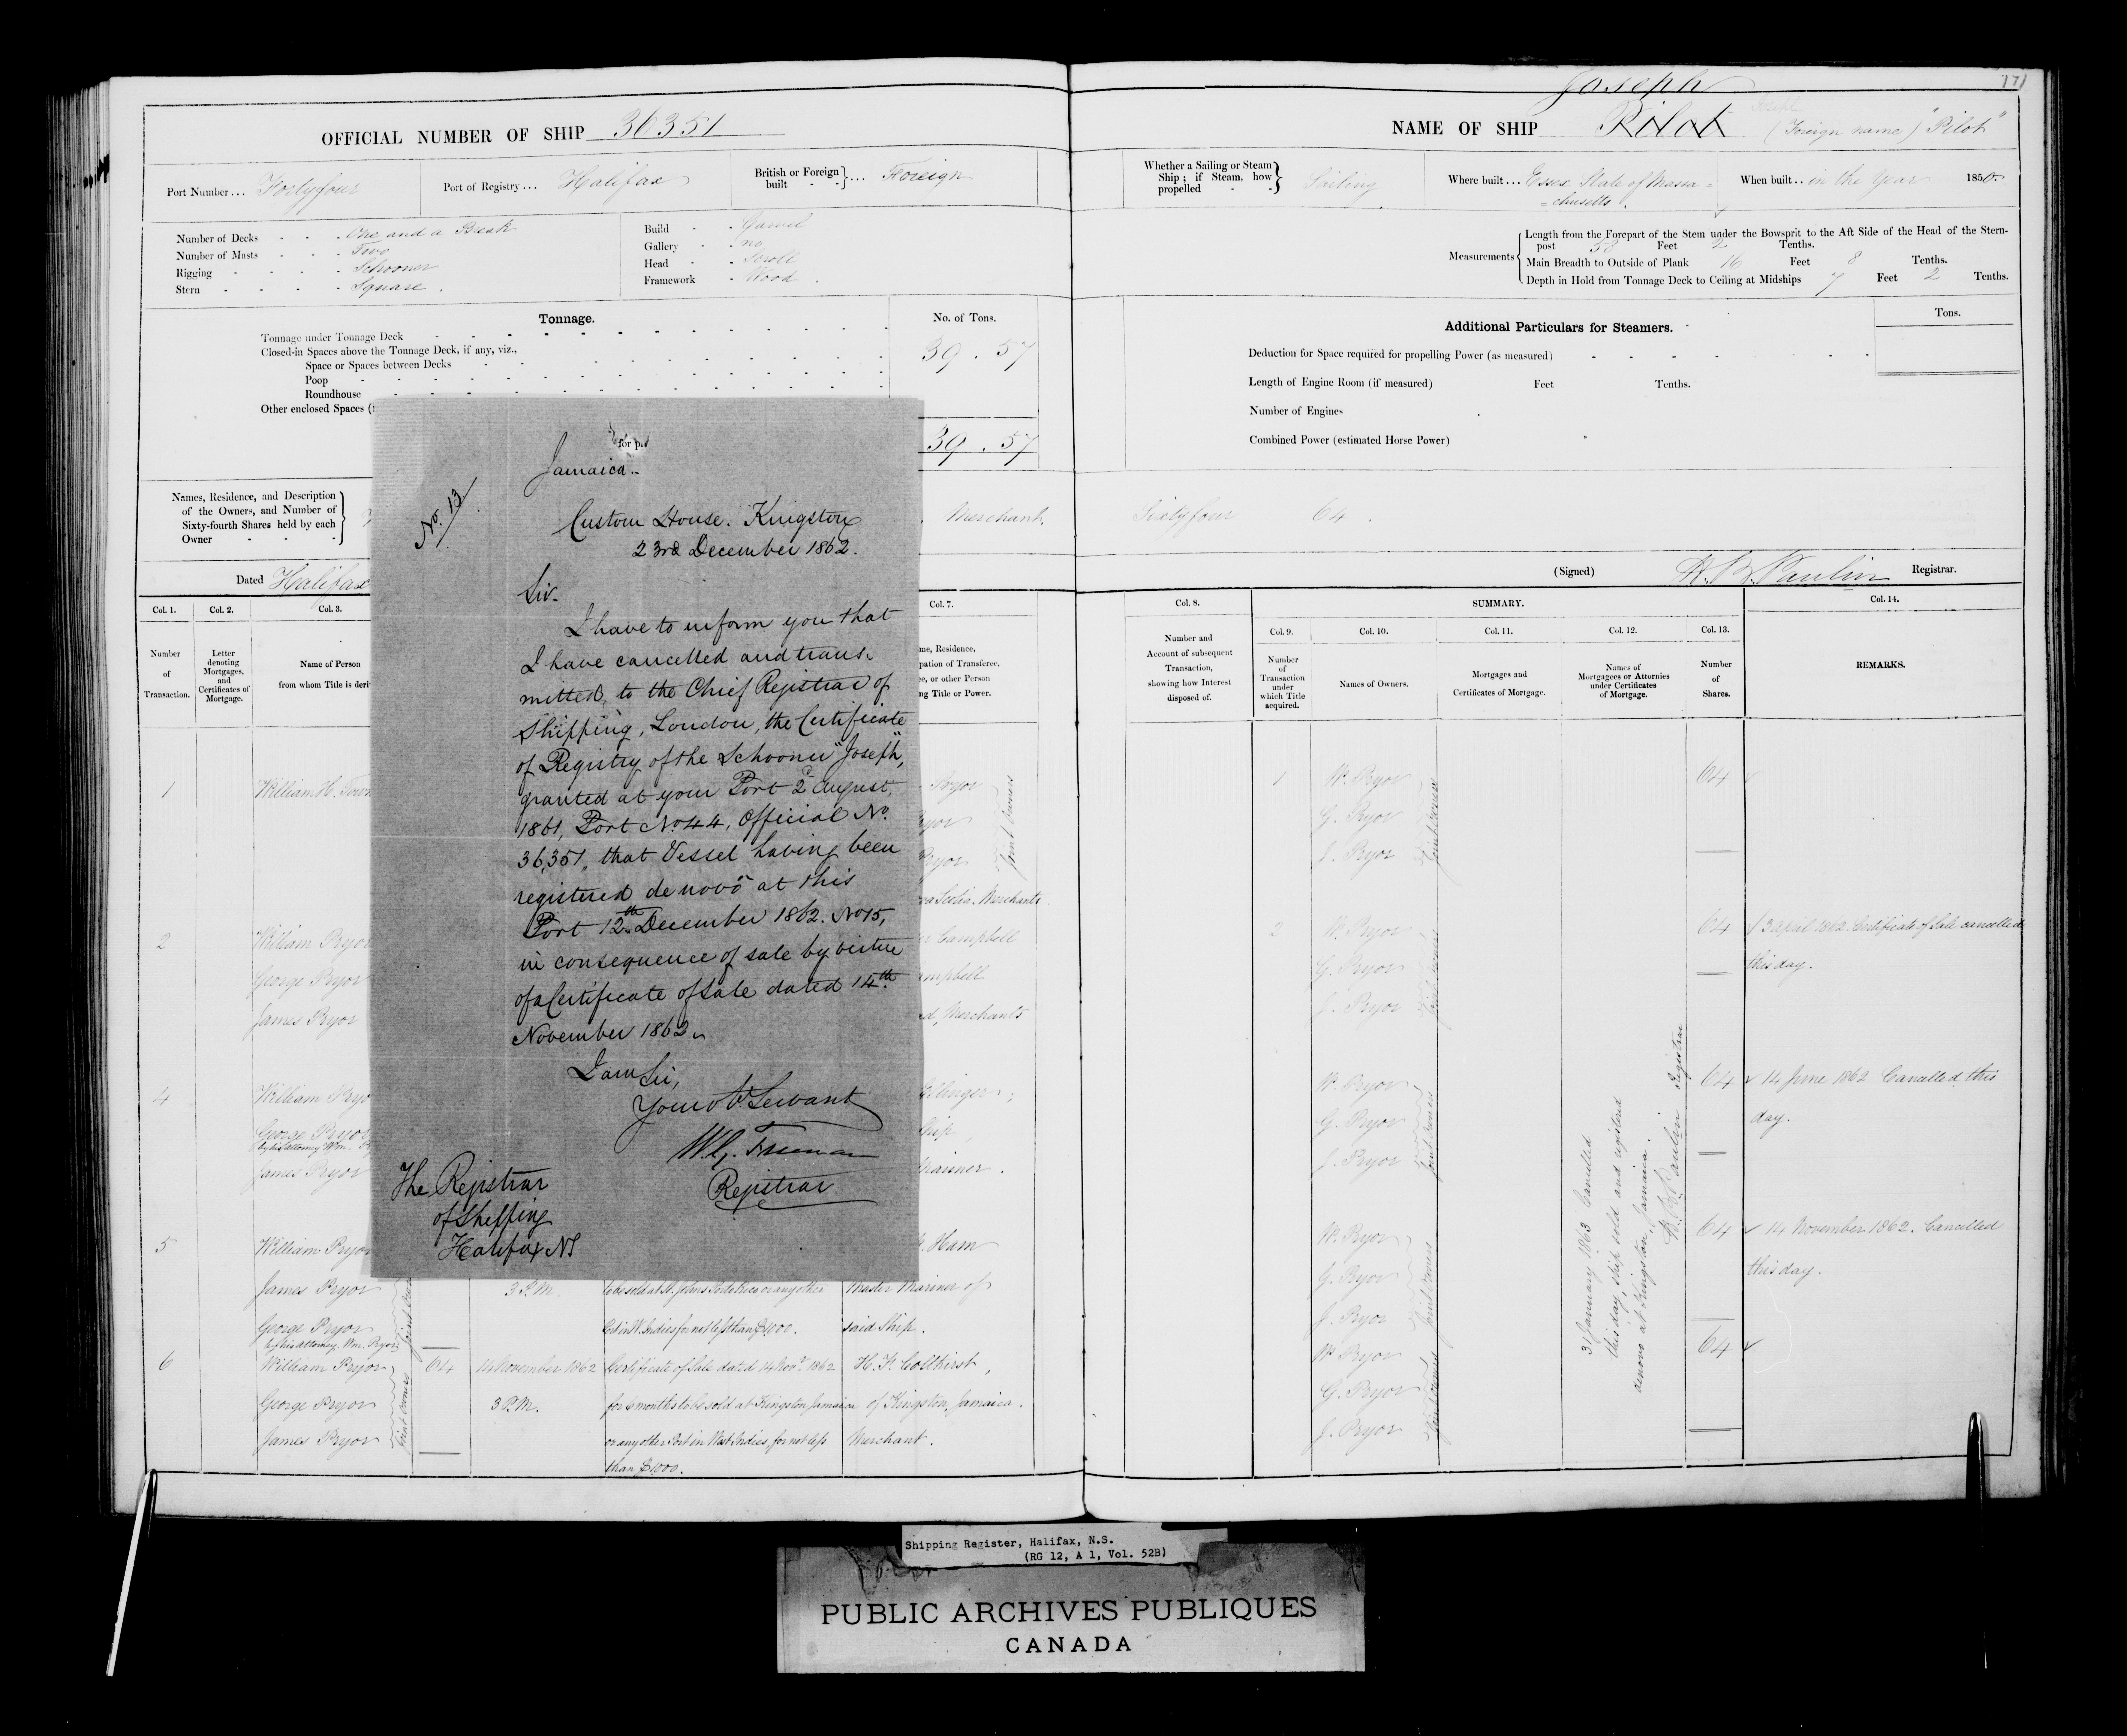 171
OFFICIAL NUMBER OF SHIP 36351
Port Number... Fortyfour
Port of Registry... Halifax
British or Foreign built - - } ... Foreign
Number of Decks - - - One and a Break
Number of Masts - - - Two
Rigging - - - - Schooner
Stern - - - - Square.
Build - - Carvel
Gallery - - no
Head - - Scroll
Framework - Wood.
Tonnage.
No. of Tons.
Tonnage under Tonnage Deck
Closed-in Spaces above the Tonnage Deck, if any, viz.,
39.57
Space or Spaces between Decks
Poop
Roundhouse
Other enclosed Spaces (
39.57
Names, Residence, and Description
of the Owners, and Number of
Sixty-fourth Shares held by each
Owner
Merchant.
Dated Halifax
Col. 1.
Col. 2.
Col. 3.
Col. 7.
Number
of
Transaction.
Letter
denoting
Mortgages,
and
Certificates of
Mortgage.
Name of Person
from whom Title is deri
me, Residence,
pation of Transferee,
ee, or other Person
ng Title or Power.
1
William H. Town
Pryor
ryor
Pryor
Joint Owners
va Scotia. Merchants.
2
William Pryor
George Pryor
James Pryor
Campbell
ampbell
d, Merchants
4
William Pryo
George Pryor
by his attorney Wm. P
James Pryor
Ship,
Mariner.
5
William Pryor
Ham
James Pryor
3 P.M.
to be sold at St. Johns Porto Rico or any other
Master Mariner of
George Pryor
by his attorney Wm. Pryor
Port in W. Indies for not less than $1000.
said Ship.
6
William Pryor
64
14 November 1862
Certificate of Sale dated 14 Novr. 1862
H. F. Colthirst,
George Pryor
3 P.M.
for 6 months to be sold at Kingston Jamaica
of Kingston, Jamaica.
James Pryor
Joint Owners
or any other Port in West Indies, for not less
Merchant.
than $1000.
for p.
Jamaica.
No. 13
Custom House. Kingston
23rd December 1862.
Sir.
I have to inform you that
I have cancelled and trans-
mitted, to the Chief Registrar of
Shipping, London, the Certificate
of Registry of the Schooner "Joseph",
granted at your Port 2d August,
1861, Port No 44, Official No.
36,351, that Vessel having been
registered de novo at this
Port 12th December 1862. No 15,
in consequence of sale by virtue
of a Certificate of Sale dated 14th
November 1862.
I am Sir,
Your obt Servant
W. G. Freeman
Registrar
The Registrar
of Shipping
Halifax NS
Joseph
NAME OF SHIP Pilot (Foreign name) "Pilot"
Joseph
Whether a Sailing or Steam
Ship; if Steam, how
propelled - - } Sailing
Where built... Essex State of Massa=
=chusetts.
When built.. in the Year 1850.
Measurements
Length from the Forepart of the Stem under the Bowsprit to the Aft Side of the Head of the Stern-
post 58 Feet 2 Tenths.
Main Breadth to Outside of Plank 16 Feet 8 Tenths.
Depth in Hold from Tonnage Deck to Ceiling at Midships 7 Feet 2 Tenths.
Additional Particulars for Steamers.
Tons.
Deduction for Space required for propelling Power (as measured)
Length of Engine Room (if measured) Feet Tenths.
Number of Engines
Combined Power (estimated Horse Power)
Sixtyfour 64.
(Signed) H. B. Paulin Registrar.
Col. 8.
SUMMARY.
Col. 14.
Col. 9.
Col. 10.
Col. 11.
Col. 12.
Col. 13.
Number and
Account of subsequent
Transaction,
showing how Interest
disposed of.
Number
of
Transaction
under
which Title
acquired.
Names of Owners.
Mortgages and
Certificates of Mortgage.
Names of
Mortgagees or Attornies
under Certificates
of Mortgage.
Number
of
Shares.
REMARKS.
1
W. Pryor
64
G. Pryor
J. Pryor
Joint Owners
2
W. Pryor
64
3 April 1862 Certificate of Sale cancelled
G. Pryor
this day.
J. Pryor
Joint Owners
W. Pryor
64
14 June 1862 Cancelled this
G. Pryor
day.
J. Pryor
Joint Owners
W. Pryor
64
14 November 1862. Cancelled
G. Pryor
this day.
J. Pryor
Joint Owners
W. Pryor
64
G. Pryor
J. Pryor
Joint Owners
31 January 1863 Cancelled
this day, ship sold and registered
denovo at Kingston, Jamaica.
H. B. Paulin Registrar
Shipping Register, Halifax, N.S.
(RG 12, A 1, Vol. 52B)
PUBLIC ARCHIVES PUBLIQUES
CANADA